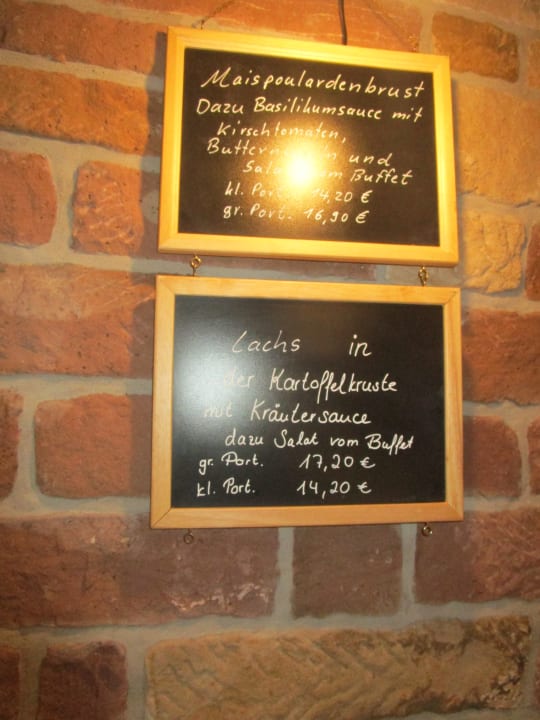 Maispoulardenbrust
Dazu Basilikumsauce mit
Kirschtomaten,
und
Buffet
kl. Port. 14,20 €
gr. Port. 16,90 €
Lachs in
der Kartoffelkruste
mit Kräutersauce
dazu Salat vom Buffet
gr. Port. 17,20 €
kl. Port. 14,20 €